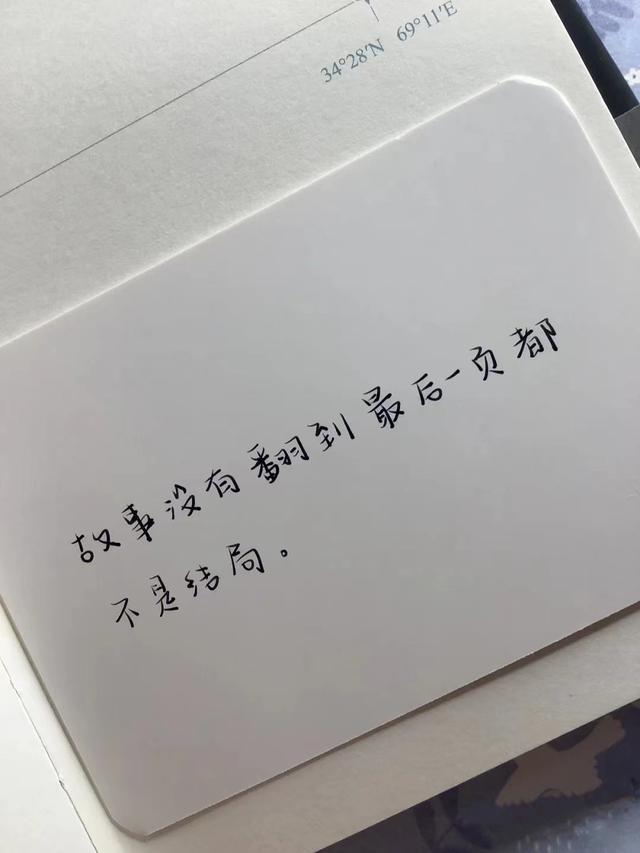 34°28'N 69°11'E
故事没有翻到最后一页都
不是结局。